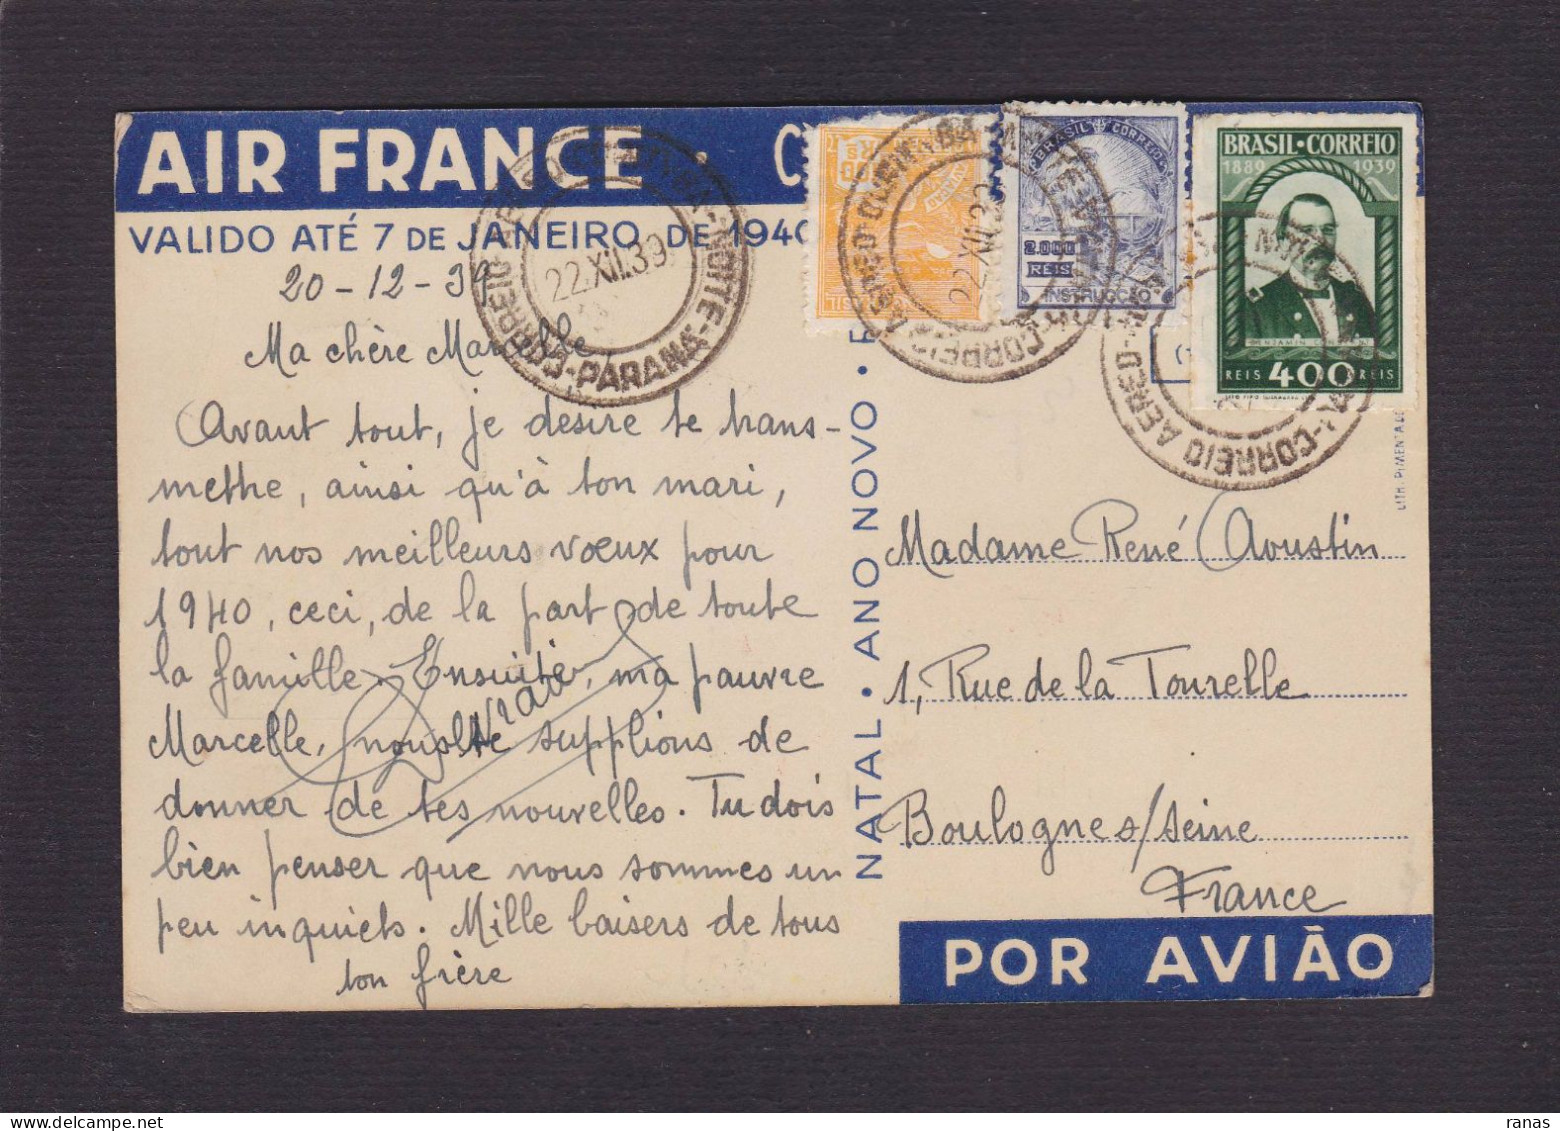 AIR FRANCE ·
VALIDO ATÉ 7 DE JANEIRO DE 1940
20-12-39
Ma chère Marcelle
Avant tout, je desire te trans-
mettre, ainsi qu'à ton mari,
tout nos meilleurs vœux pour
1940, ceci, de la part de toute
la famille. Ensuite, ma pauvre
Marcelle, nous te supplions de
donner de tes nouvelles. Tu dois
bien penser que nous sommes un
peu inquiets. Mille baisers de tous
ton frère
22.XII.39
CORREIO AEREO
PARANÁ
NATAL · ANO NOVO ·
BRASIL CORREIO
2.000
RÉIS
INSTRUCÇÃO
BRASIL·CORREIO
1889 1939
BENJAMIN CONSTANT
REIS 400 REIS
LITH. PIMENTA DE
Madame René Avustin
1, Rue de la Tourelle
Boulogne s/Seine
France
POR AVIÃO
ranas